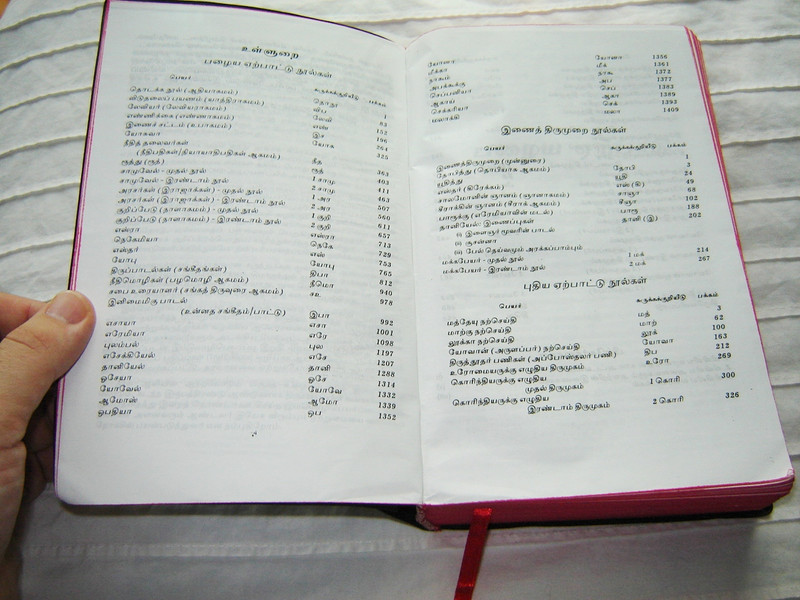 உள்ளுறை
பழைய ஏற்பாட்டு நூல்கள்
பெயர் சுருக்கக்குறியீடு பக்கம்
தொடக்க நூல் (ஆதியாகமம்) தொநூ 1
விடுதலைப் பயணம் (யாத்திராகமம்) விப
லேவியர் (லேவியராகமம்) லேவி
எண்ணிக்கை (எண்ணாகமம்) எண் 152
இணைச் சட்டம் (உபாகமம்) இச 196
யோசுவா யோசு 264
நீதித் தலைவர்கள் 325
(நீதிபதிகள்/நியாயாதிபதிகள் ஆகமம்) நீத
ரூத்து (ரூத்) ரூத் 363
சாமுவேல் - முதல் நூல் 1 சாமு 403
சாமுவேல் - இரண்டாம் நூல் 2 சாமு 411
அரசர்கள் (இராஜாக்கள்) - முதல் நூல் 1 அர 463
அரசர்கள் (இராஜாக்கள்) - இரண்டாம் நூல் 2 அர 507
குறிப்பேடு (நாளாகமம்) - முதல் நூல் 1 குறி 560
குறிப்பேடு (நாளாகமம்) - இரண்டாம் நூல் 2 குறி 611
எஸ்ரா எஸ்ரா 657
நெகேமியா நெகே 713
எஸ்தர் எஸ் 729
யோபு யோபு 753
திருப்பாடல்கள் (சங்கீதங்கள்) திபா 765
நீதிமொழிகள் (பழமொழி ஆகமம்) நீமொ 812
சபை உரையாளர் (சங்கத் திருவுரை ஆகமம்) சஉ 940
இனிமைமிகு பாடல் 978
(உன்னத சங்கீதம்/பாட்டு) இபா
எசாயா எசா 992
எரேமியா எரே 1001
புலம்பல் புல 1098
எசேக்கியேல் எசே 1197
தானியேல் தானி 1207
ஓசேயா ஓசே 1288
யோவேல் யோவே 1314
ஆமோஸ் ஆமோ 1332
ஒபதியா ஒப 1339
1352
யோனா யோனா 1356
மீக்கா மீக் 1361
நாகூம் நாகூ 1372
அபக்கூக்கு அப 1377
செப்பனியா செப் 1383
ஆகாய் ஆகா 1389
செக்கரியா செக் 1393
மலாக்கி மலா 1409
இணைத் திருமுறை நூல்கள்
பெயர் சுருக்கக்குறியீடு பக்கம்
இணைத்திருமுறை (முன்னுரை) 1
தோபித்து (தொபியாசு ஆகமம்) தோபி 3
யூதித்து யூதி 24
எஸ்தர் (கிரேக்கம்) எஸ் (கி) 49
சாலமோனின் ஞானம் (ஞானாகமம்) சாஞா 68
சீராக்கின் ஞானம் (சீராக் ஆகமம்) சீஞா 102
பாரூக்கு (எரேமியாவின் மடல்) பாரூ 188
தானியேல்: இணைப்புகள் தானி (இ) 202
(i) இளைஞர் மூவரின் பாடல்
(ii) சூசன்னா
(iii) பேல் தெய்வமும் அரக்கப்பாம்பும்
மக்கபேயர் - முதல் நூல் 1 மக் 214
மக்கபேயர் - இரண்டாம் நூல் 2 மக் 267
புதிய ஏற்பாட்டு நூல்கள்
பெயர் சுருக்கக்குறியீடு பக்கம்
மத்தேயு நற்செய்தி மத் 3
மாற்கு நற்செய்தி மாற் 62
லூக்கா நற்செய்தி லூக் 100
யோவான் (அருளப்பர்) நற்செய்தி யோவா 163
திருத்தூதர் பணிகள் (அப்போஸ்தலர் பணி) திப 212
உரோமையருக்கு எழுதிய திருமுகம் உரோ 269
கொரிந்தியருக்கு எழுதிய
முதல் திருமுகம் 1 கொரி 300
கொரிந்தியருக்கு எழுதிய
இரண்டாம் திருமுகம் 2 கொரி 326